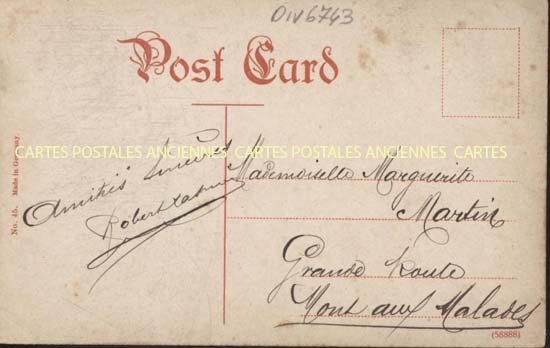 DIV6743
Post Card
CARTES POSTALES ANCIENNES CARTES POSTALES ANCIENNES CARTES
No. 45. Made in Germany
Amitiés Sincères
Robert
Mademoiselle Marguerite
Martin
Grande Route
Mont aux Malades
(58888)